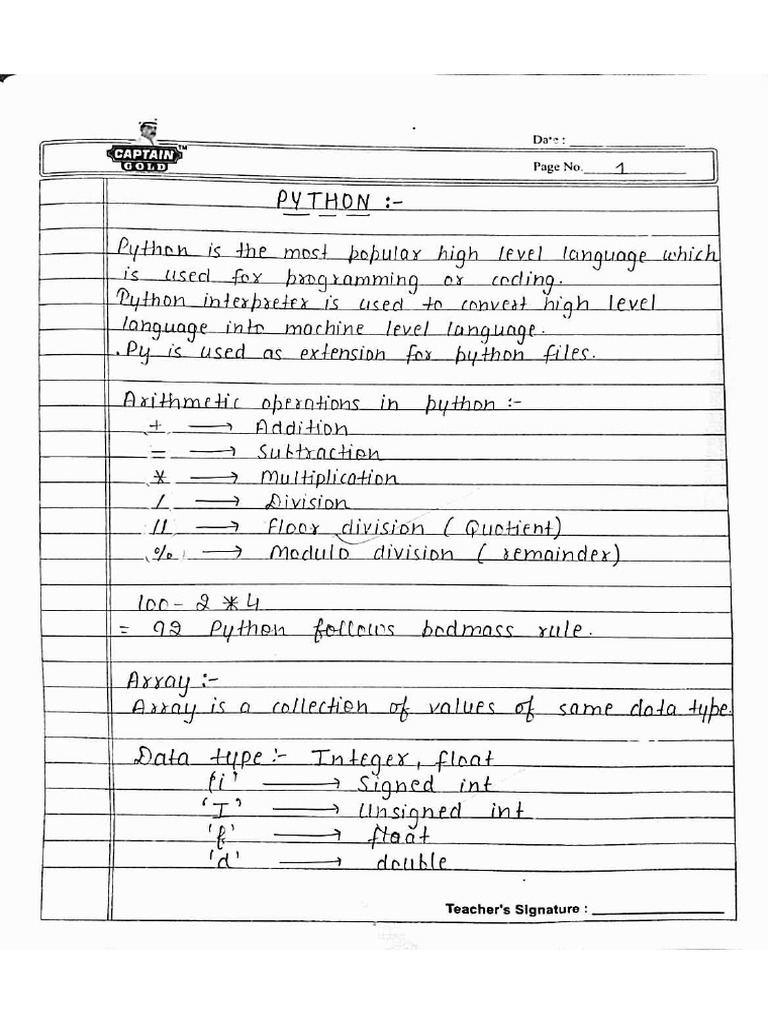 CAPTAIN™
GOLD
Date :
Page No. 1
PYTHON :-
Python is the most popular high level language which
is used for programming or coding.
Python interpreter is used to convert high level
language into machine level language.
.Py is used as extension for python files.
Arithmetic operations in python :-
+ → Addition
- → Subtraction
* → Multiplication
/ → Division
// → floor division ( Quotient)
% → Modulo division ( remainder)
100 - 2 * 4
= 92 Python follows bodmass rule.
Array :-
Array is a collection of values of same data type.
Data type :- Integer, float
'i' → Signed int
'I' → Unsigned int
'f' → float
'd' → double
Teacher's Signature :